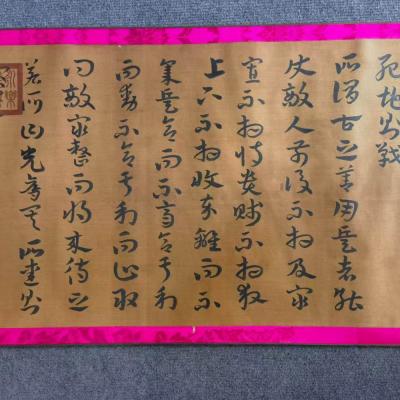 死地則戰
所謂古之善用兵者能
使敵人前後不相及眾
寡不相恃貴賤不相救
上下不相收卒離而不
集兵合而不齊合于利
而動不合于利而止敢
問敵眾整而將來待之
若何曰先奪其所愛則